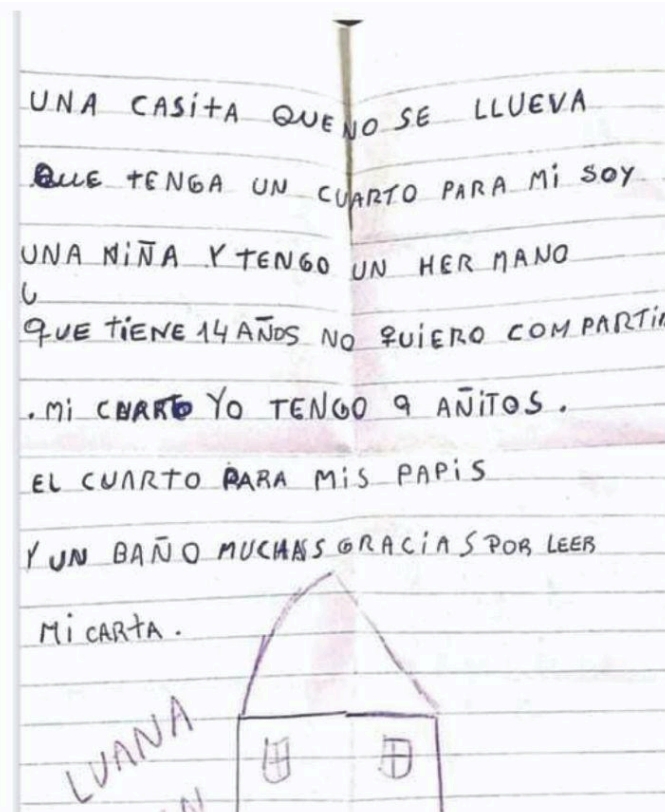 UNA CASITA QUE NO SE LLUEVA
QUE TENGA UN CUARTO PARA MI SOY
UNA NIÑA Y TENGO UN HERMANO
QUE TIENE 14 AÑOS NO QUIERO COMPARTIR
. MI CUARTO YO TENGO 9 AÑITOS.
EL CUARTO PARA MIS PAPIS
Y UN BAÑO MUCHAS GRACIAS POR LEER
MI CARTA.
LUANA